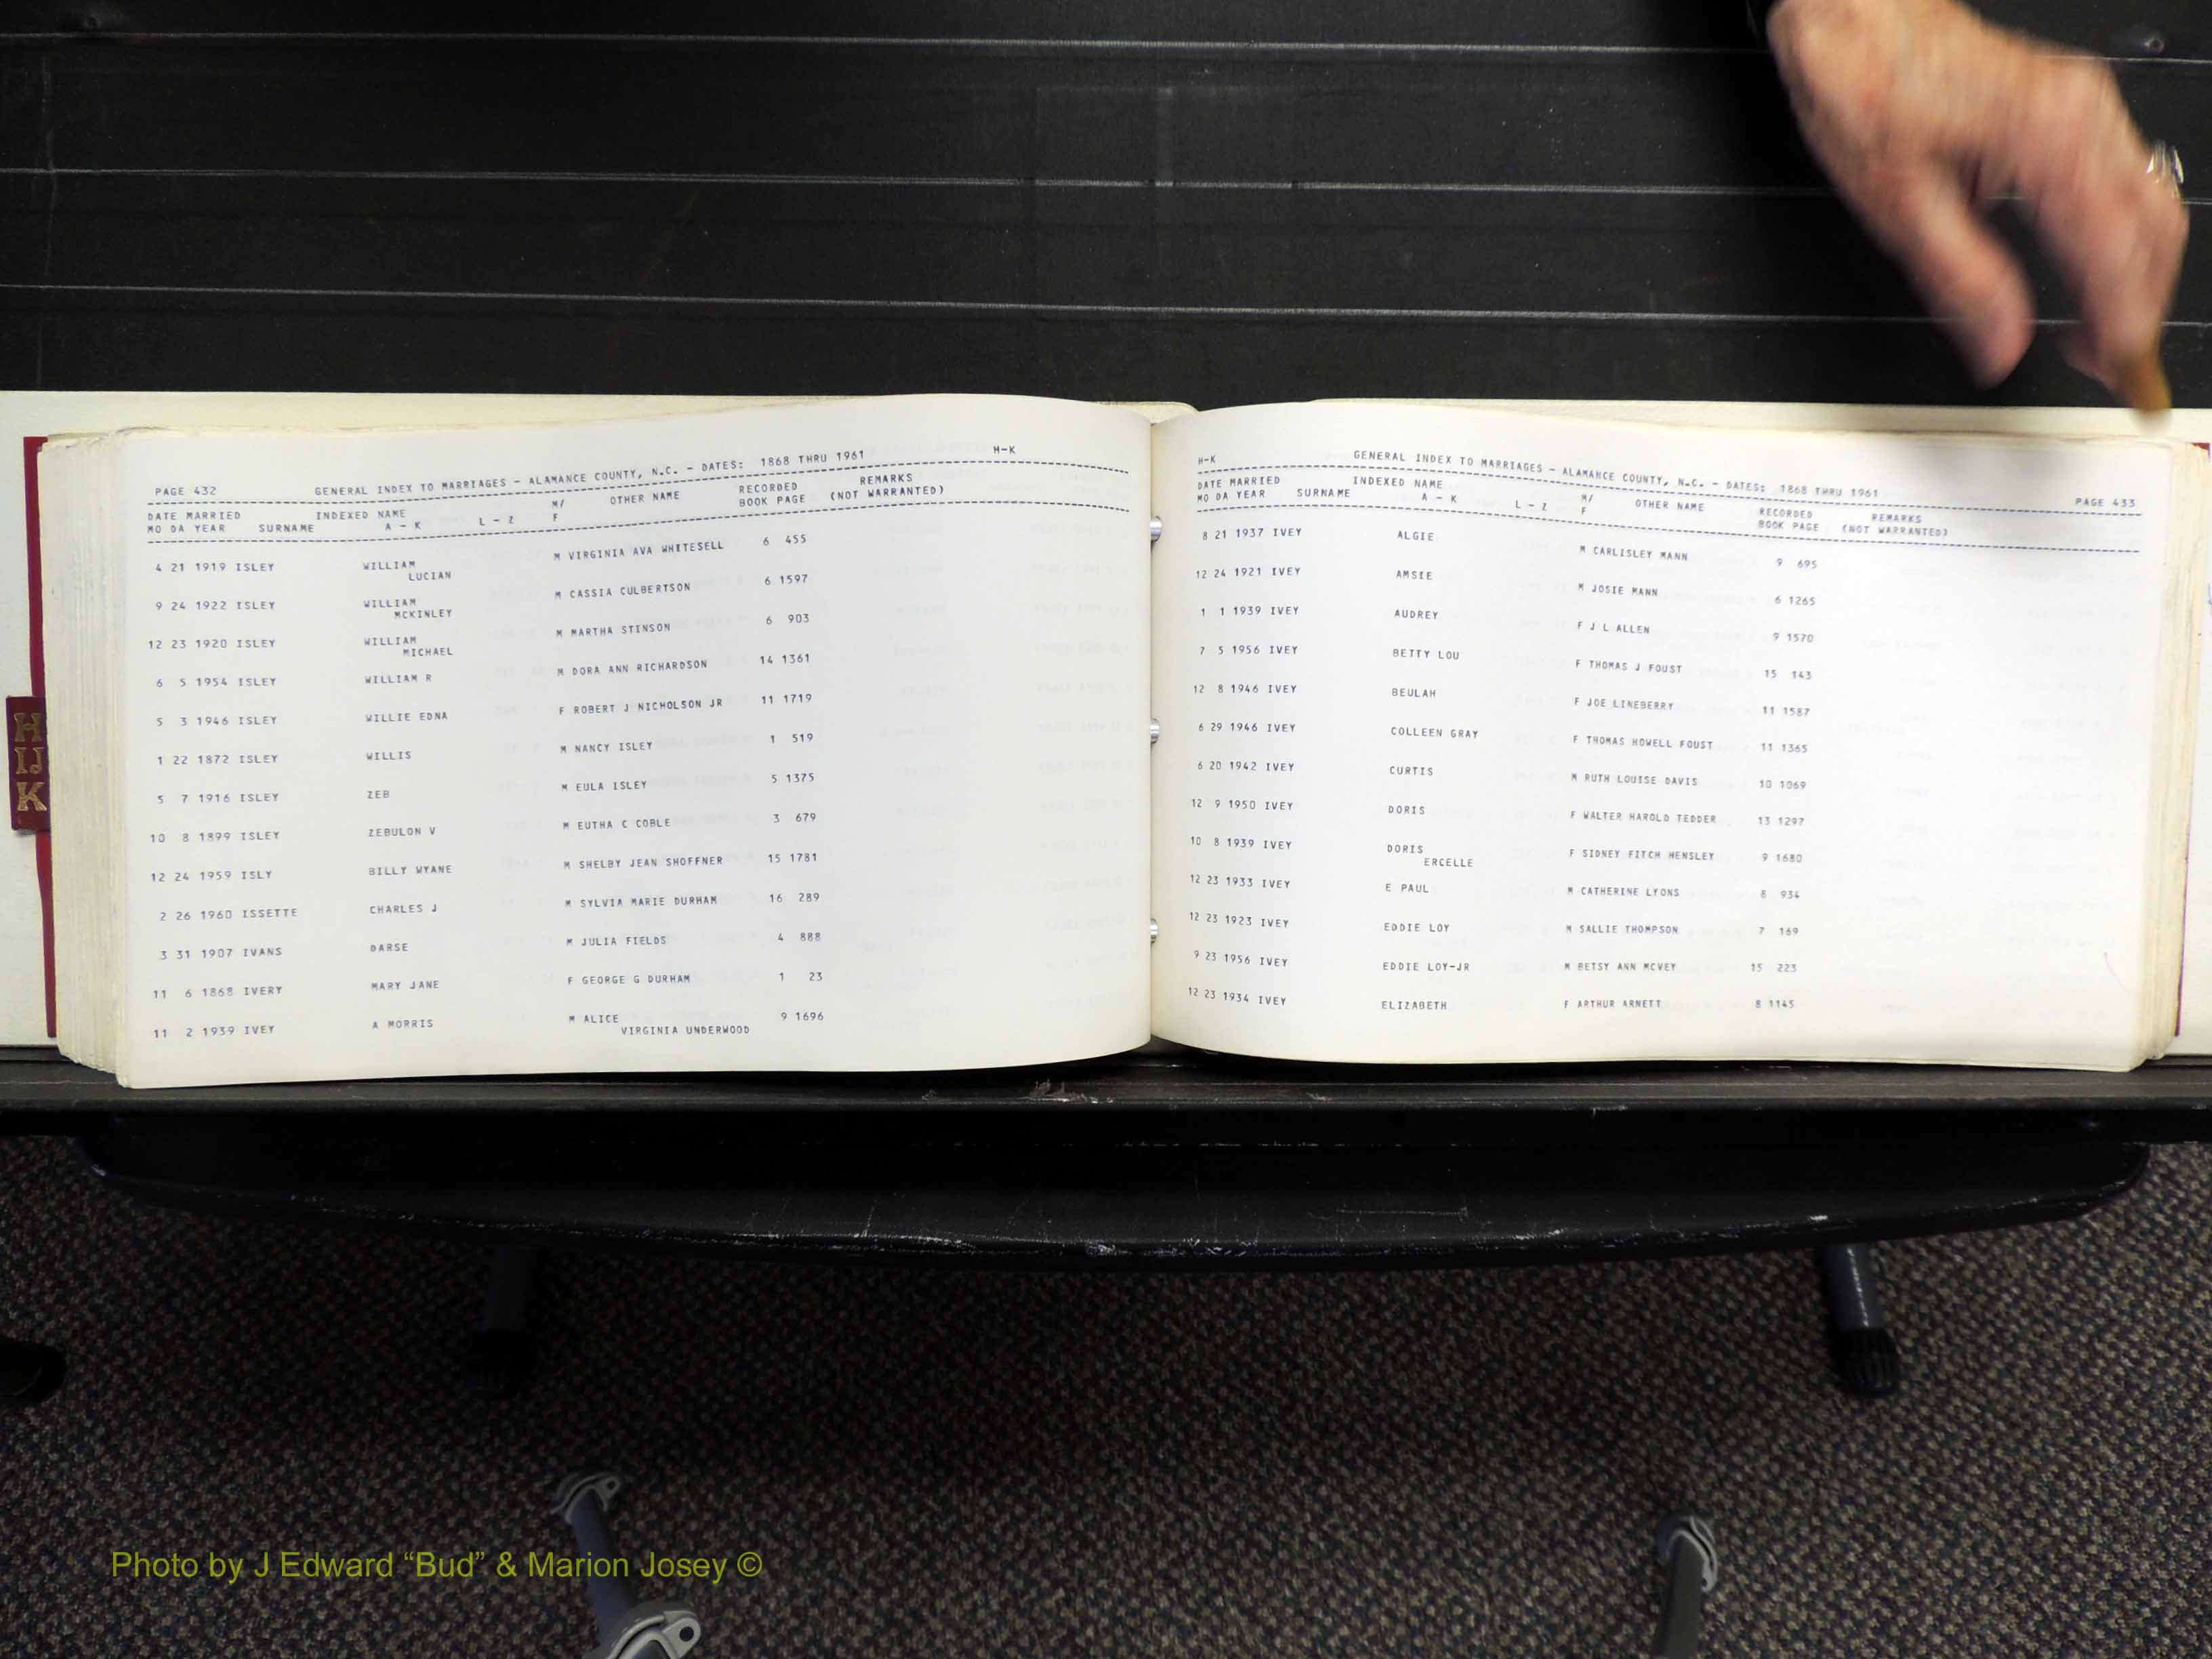 H
IJ
K
PAGE 432 GENERAL INDEX TO MARRIAGES - ALAMANCE COUNTY, N.C. - DATES: 1868 THRU 1961 H-K
DATE MARRIED INDEXED NAME M/ OTHER NAME RECORDED REMARKS
MO DA YEAR SURNAME A - K L - Z F BOOK PAGE (NOT WARRANTED)
4 21 1919 ISLEY WILLIAM M VIRGINIA AVA WHITESELL 6 455
LUCIAN
9 24 1922 ISLEY WILLIAM M CASSIA CULBERTSON 6 1597
MCKINLEY
12 23 1920 ISLEY WILLIAM M MARTHA STINSON 6 903
MICHAEL
6 5 1954 ISLEY WILLIAM R M DORA ANN RICHARDSON 14 1361
5 3 1946 ISLEY WILLIE EDNA F ROBERT J NICHOLSON JR 11 1719
1 22 1872 ISLEY WILLIS M NANCY ISLEY 1 519
5 7 1916 ISLEY ZEB M EULA ISLEY 5 1375
10 8 1899 ISLEY ZEBULON V M EUTHA C COBLE 3 679
12 24 1959 ISLY BILLY WYANE M SHELBY JEAN SHOFFNER 15 1781
2 26 1960 ISSETTE CHARLES J M SYLVIA MARIE DURHAM 16 289
3 31 1907 IVANS DARSE M JULIA FIELDS 4 888
11 6 1868 IVERY MARY JANE F GEORGE G DURHAM 1 23
11 2 1939 IVEY A MORRIS M ALICE 9 1696
VIRGINIA UNDERWOOD
H-K GENERAL INDEX TO MARRIAGES - ALAMANCE COUNTY, N.C. - DATES: 1868 THRU 1961 PAGE 433
DATE MARRIED INDEXED NAME M/ OTHER NAME RECORDED REMARKS
MO DA YEAR SURNAME A - K L - Z F BOOK PAGE (NOT WARRANTED)
8 21 1937 IVEY ALGIE M CARLISLEY MANN 9 695
12 24 1921 IVEY AMSIE M JOSIE MANN 6 1265
1 1 1939 IVEY AUDREY F J L ALLEN 9 1570
7 5 1956 IVEY BETTY LOU F THOMAS J FOUST 15 143
12 8 1946 IVEY BEULAH F JOE LINEBERRY 11 1587
6 29 1946 IVEY COLLEEN GRAY F THOMAS HOWELL FOUST 11 1365
6 20 1942 IVEY CURTIS M RUTH LOUISE DAVIS 10 1069
12 9 1950 IVEY DORIS F WALTER HAROLD TEDDER 13 1297
10 8 1939 IVEY DORIS F SIDNEY FITCH HENSLEY 9 1680
ERCELLE
12 23 1933 IVEY E PAUL M CATHERINE LYONS 8 934
12 23 1923 IVEY EDDIE LOY M SALLIE THOMPSON 7 169
9 23 1956 IVEY EDDIE LOY-JR M BETSY ANN MCVEY 15 223
12 23 1934 IVEY ELIZABETH F ARTHUR ARNETT 8 1145
Photo by J Edward “Bud” & Marion Josey ©